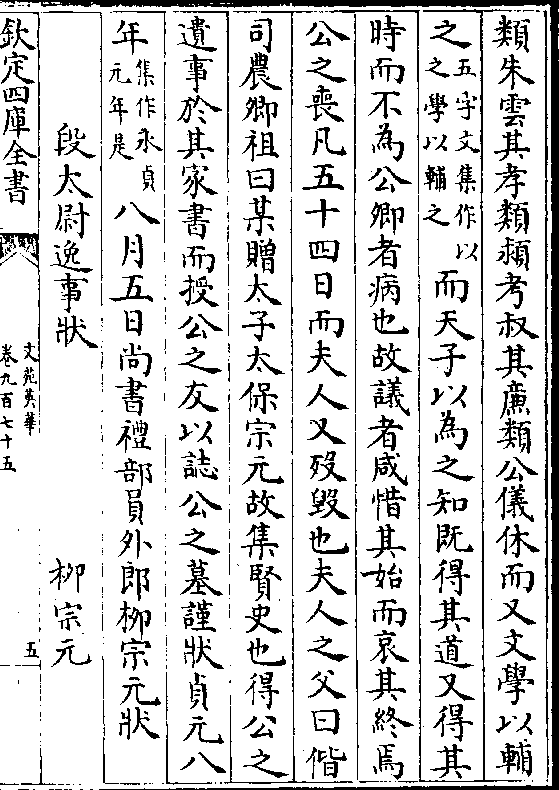 類朱雲其孝類潁考叔其廉類公儀休而又文學以輔
之五字文集作以之學以輔之而天子以為之知既得其道又得其
時而不為公卿者病也故議者咸惜其始而哀其終焉
公之喪凡五十四日而夫人又歿毀也夫人之父曰偕
司農卿祖曰某贈太子太保宗元故集賢吏也得公之
遺事於其家書而授公之友以誌公之墓謹狀貞元八
年集作永貞元年是八月五日尚書禮部員外郎柳宗元狀
段太尉逸事狀 柳宗元
欽定四庫全書
文苑英華
卷九百七十五
五